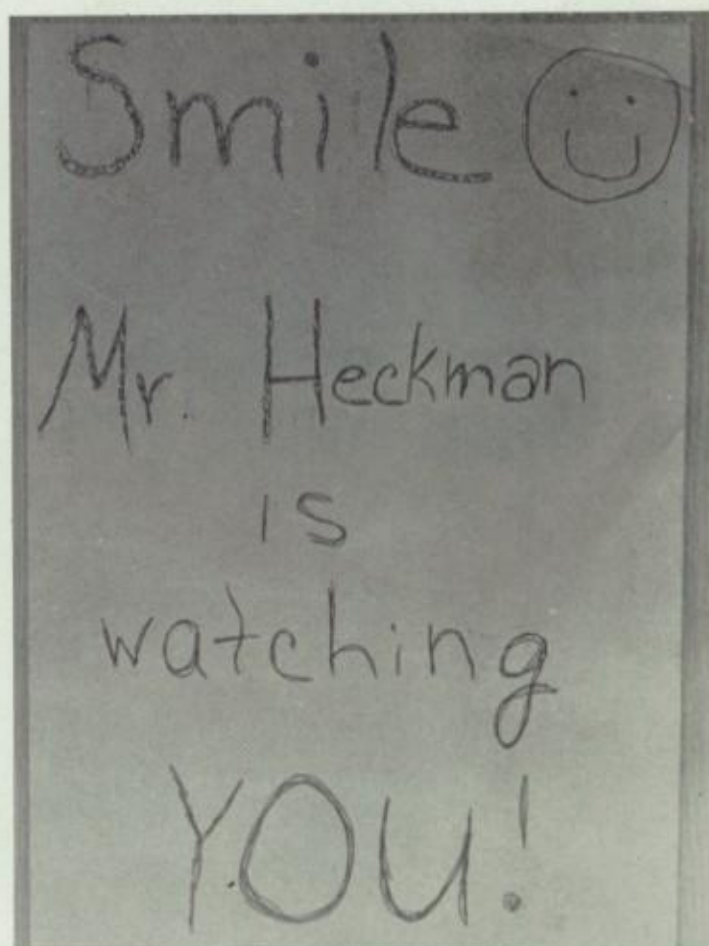 Smile
Mr. Heckman
is
watching
YOU!